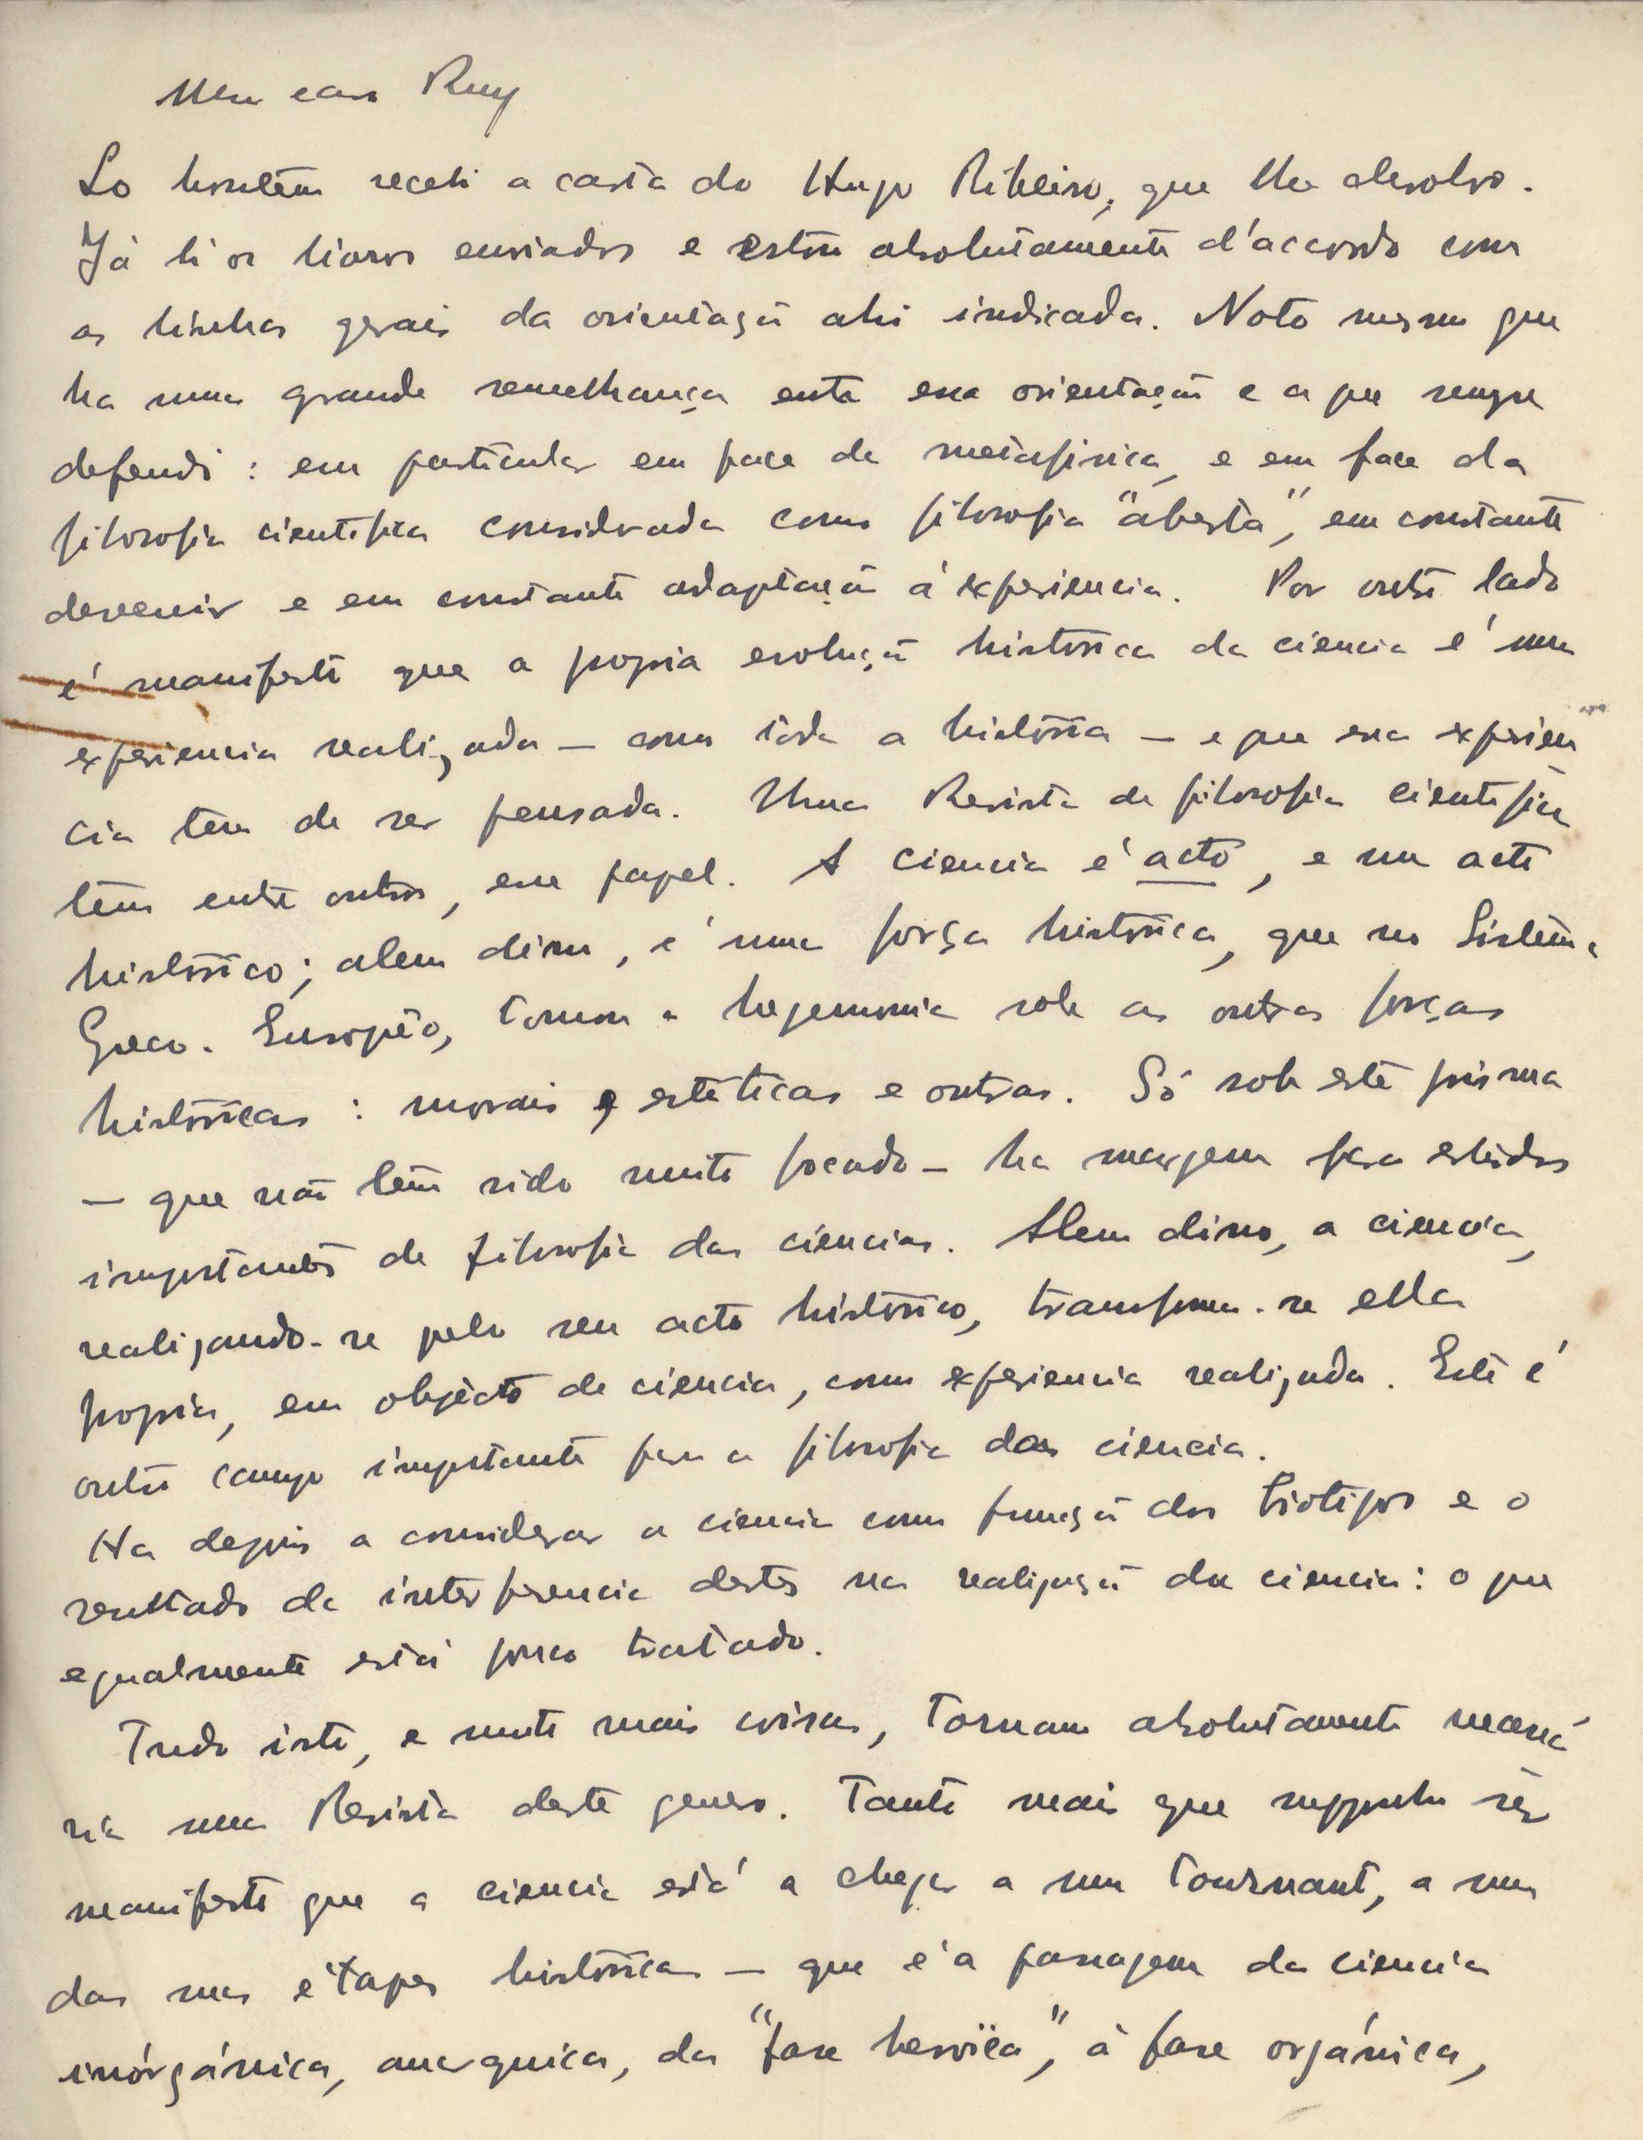 Meu caro Ruy
So hontem recebi a carta do Hugo Ribeiro, que lhe devolvo.
Já li os livros enviados e estou absolutamente d'accordo com
as linhas gerais da orientação ahi indicada. Noto mesmo que
ha uma grande semelhança entre essa orientação e a que sempre
defendi : em particular em face da metafisica, e em face da
filosofia cientifica considerada como filosofia "aberta", em constante
devenir e em constante adaptação á experiencia. Por outro lado
é manifesto que a propria evolução historica da ciencia é uma
experiencia realizada — como toda a historia — e que essa experien
cia tem de ser pensada. Uma Revista de filosofia cientifica
tem entre outros, esse papel. A Ciencia é acto, e um acto
historico; alem disso, é uma força historica, que no Sistema
Greco-Europêo, tomou a hegemonia sobre as outras forças
historicas : morais, esteticas e outras. Só sob este prisma
— que não tem sido muito focado — ha margem para estudos
importantes de filosofia das ciencias. Alem disso, a ciencia,
realizando-se pelo seu acto historico, transforma-se ella
propria, em objecto de ciencia, como experiencia realizada. Este é
outro campo importante para a filosofia da ciencia.
Ha depois a considerar a ciencia como função dos biotipos e o
resultado da interferencia destes na realização da ciencia : o que
egualmente está pouco tratado.
Tudo isto, e muito mais coisas, tornam absolutamente necessá
ria uma Revista deste genero. Tanto mais que supponho ser
manifesto que a ciencia está a chegar a um tournant, a uma
das suas étapes historicas — que é a passagem da ciencia
inórgánica, anarquica, da "fase heroïca", á fase orgánica,